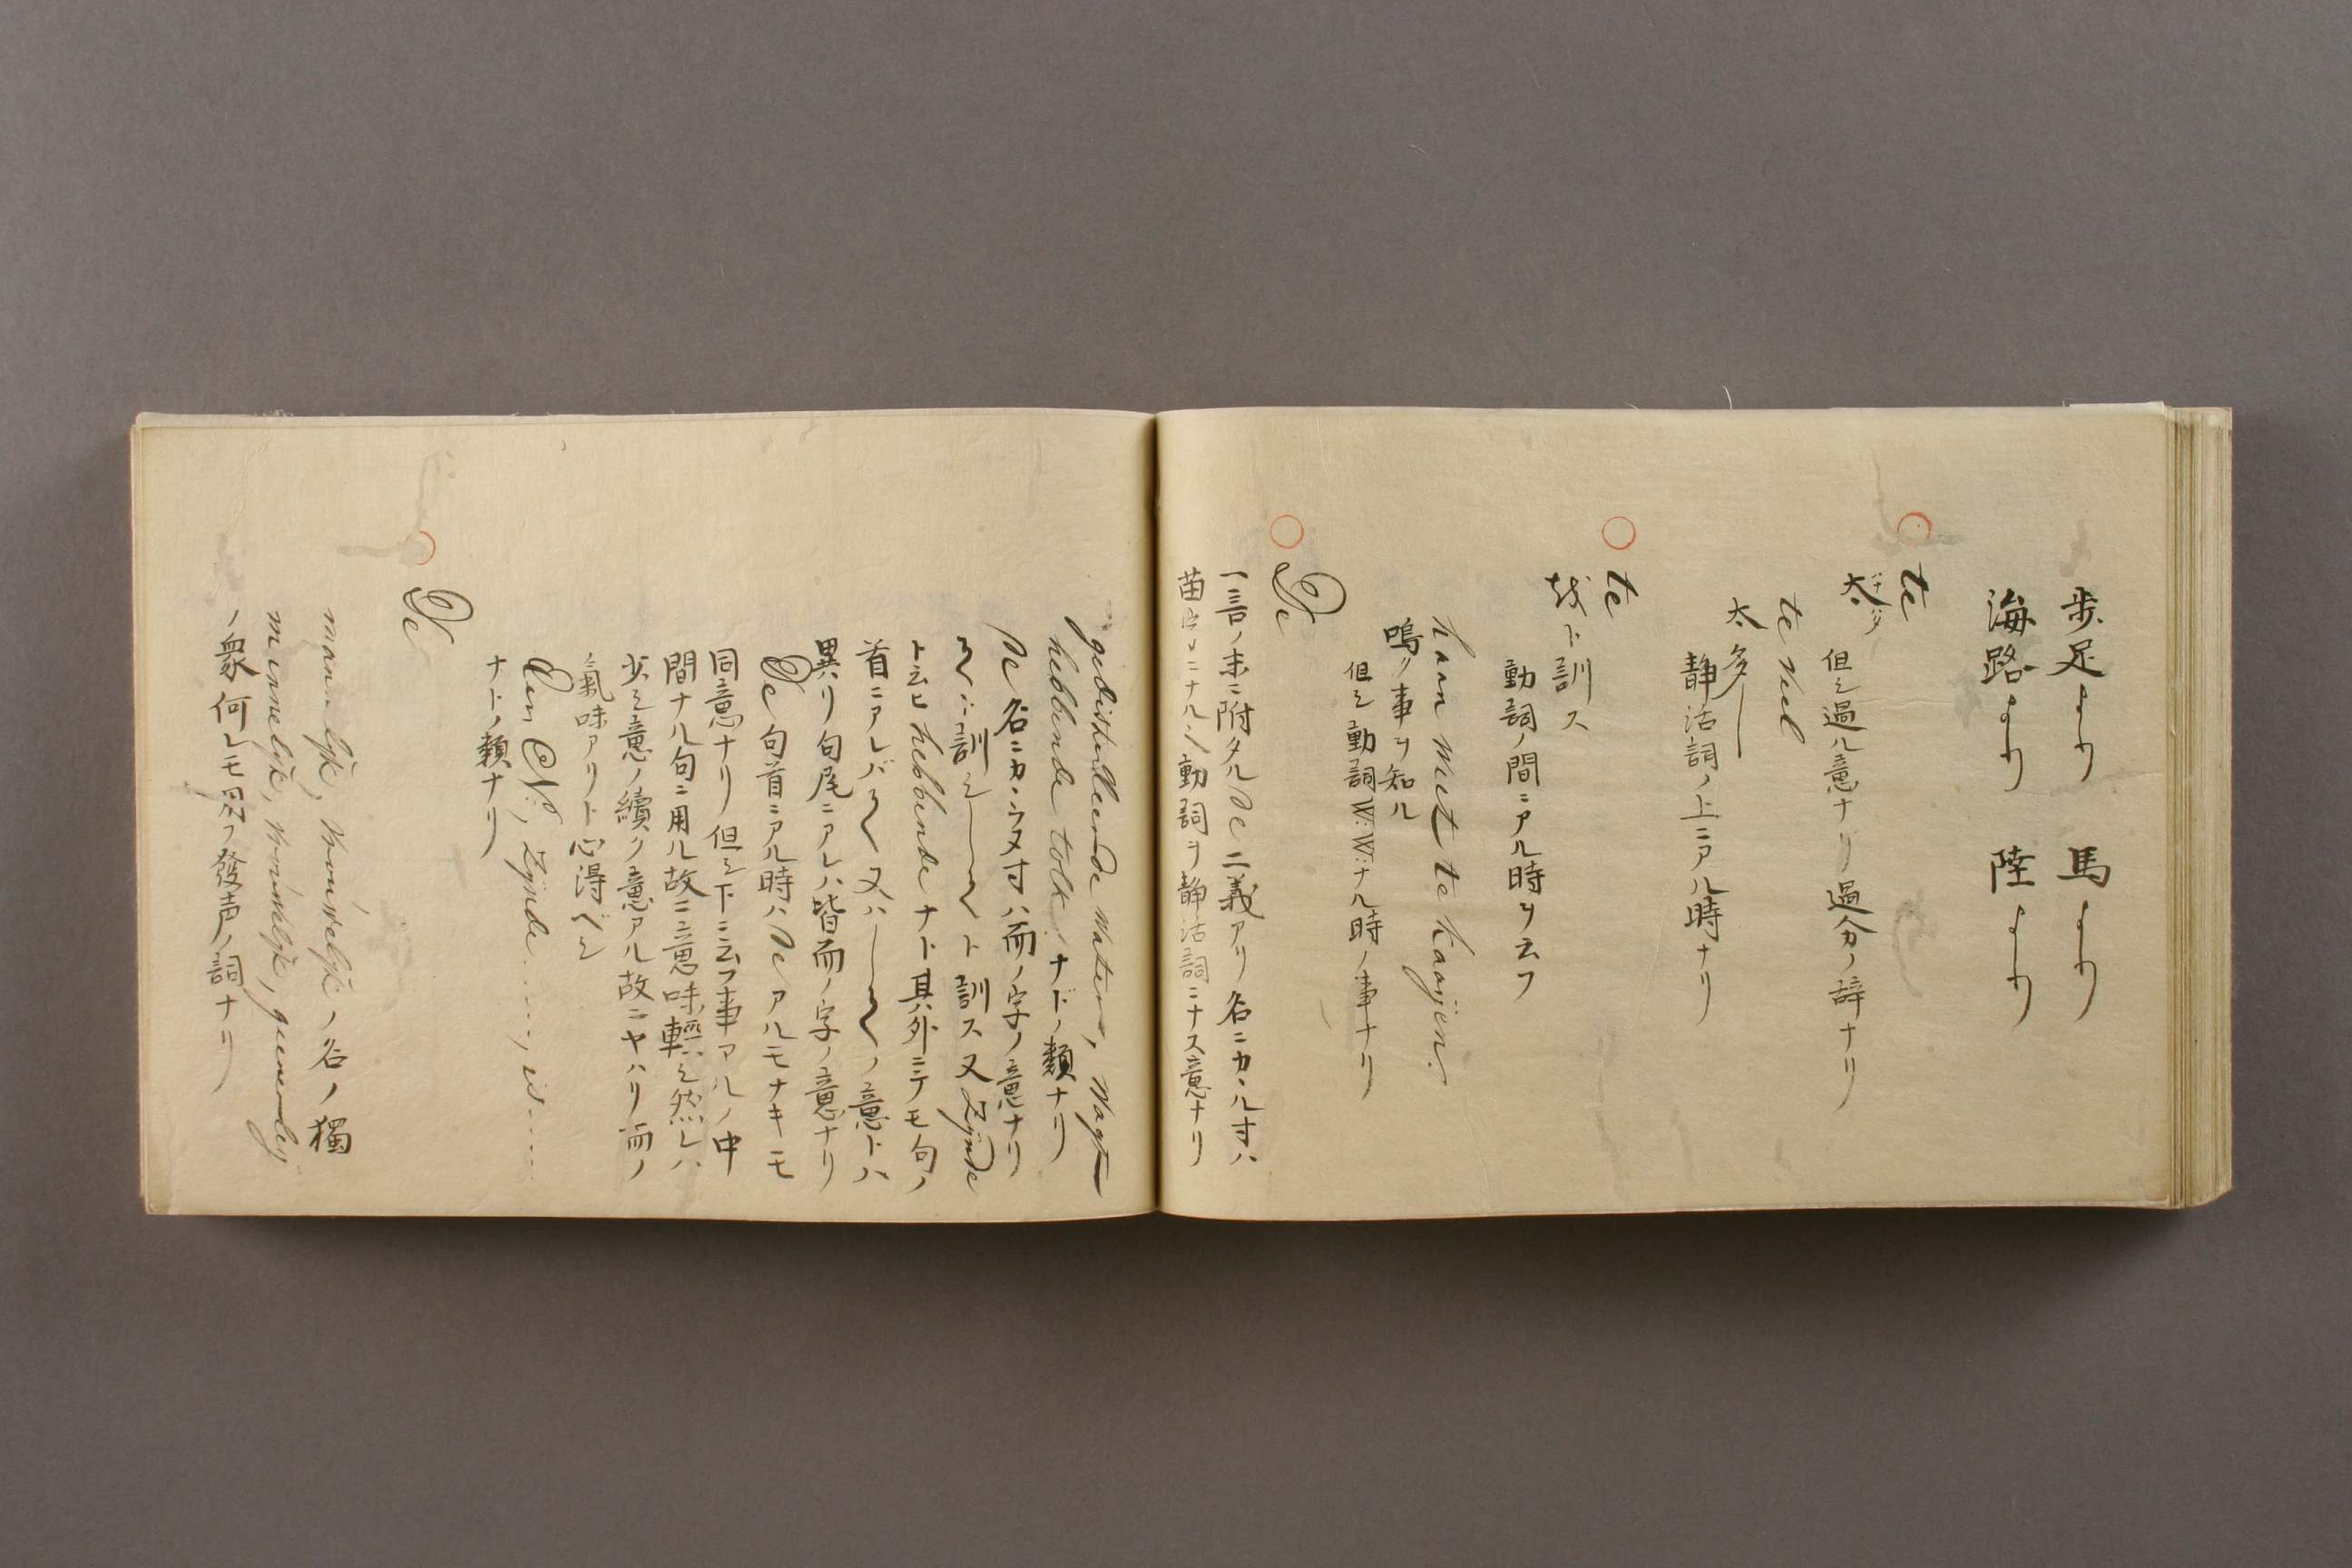 歩足より 馬より
海路より 陸より
○ te
太 ハナハダ
但シ過ル意ナリ過分ノ辞ナリ
te veel
太多
静活詞ノ上ニアル時ナリ
○ te
哉ト訓ス
動詞ノ間ニアル時ヲ云フ
haan met te kraayen.
鳴ノ事ヲ知ル
但シ動詞W:W:ナル時ノ事ナリ
○ De
一言ノ末ニ附タルde二義アリ名ニカヽル寸ハ
動詞ヲ静活詞ニナス意ナリ
gedistilleerde water, vaste
hebbende tolk ナドノ類ナリ
de名ニカヽラヌ寸ハ而ノ字ノ意ナリ
訓シ ト訓ス又zijnde
ト云ヒhebbendeナト其外ニテモ句ノ
首ニアレバ 又ハ ノ意トハ
異リ句尾ニアレハ皆而ノ字ノ意ナリ
De句首ニアル時ハdeアルモナキモ
同意ナリ但シ下ニ云フ事アルノ中
間ナル句ニ用ル故ニ意味輕シ然レハ
少シ意ノ續ク意アル故ニヤハリ而ノ
氣味アリト心得ベシ
Den N:, zijnde ...., is ....
ナトノ類ナリ
○ De
manlijk, vrouwelijk ノ名ノ獨
minnelijk, vrindlijk,
ノ衆何レモ用フ發声ノ詞ナリ